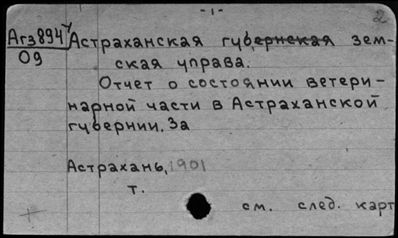 -1-
2
Агз894
Астраханская губернская зем-
09
ская управа.
Отчет о состоянии ветери-
нарной части в Астраханской
губернии. За
Астрахань, 1901
т.
см. след. карт